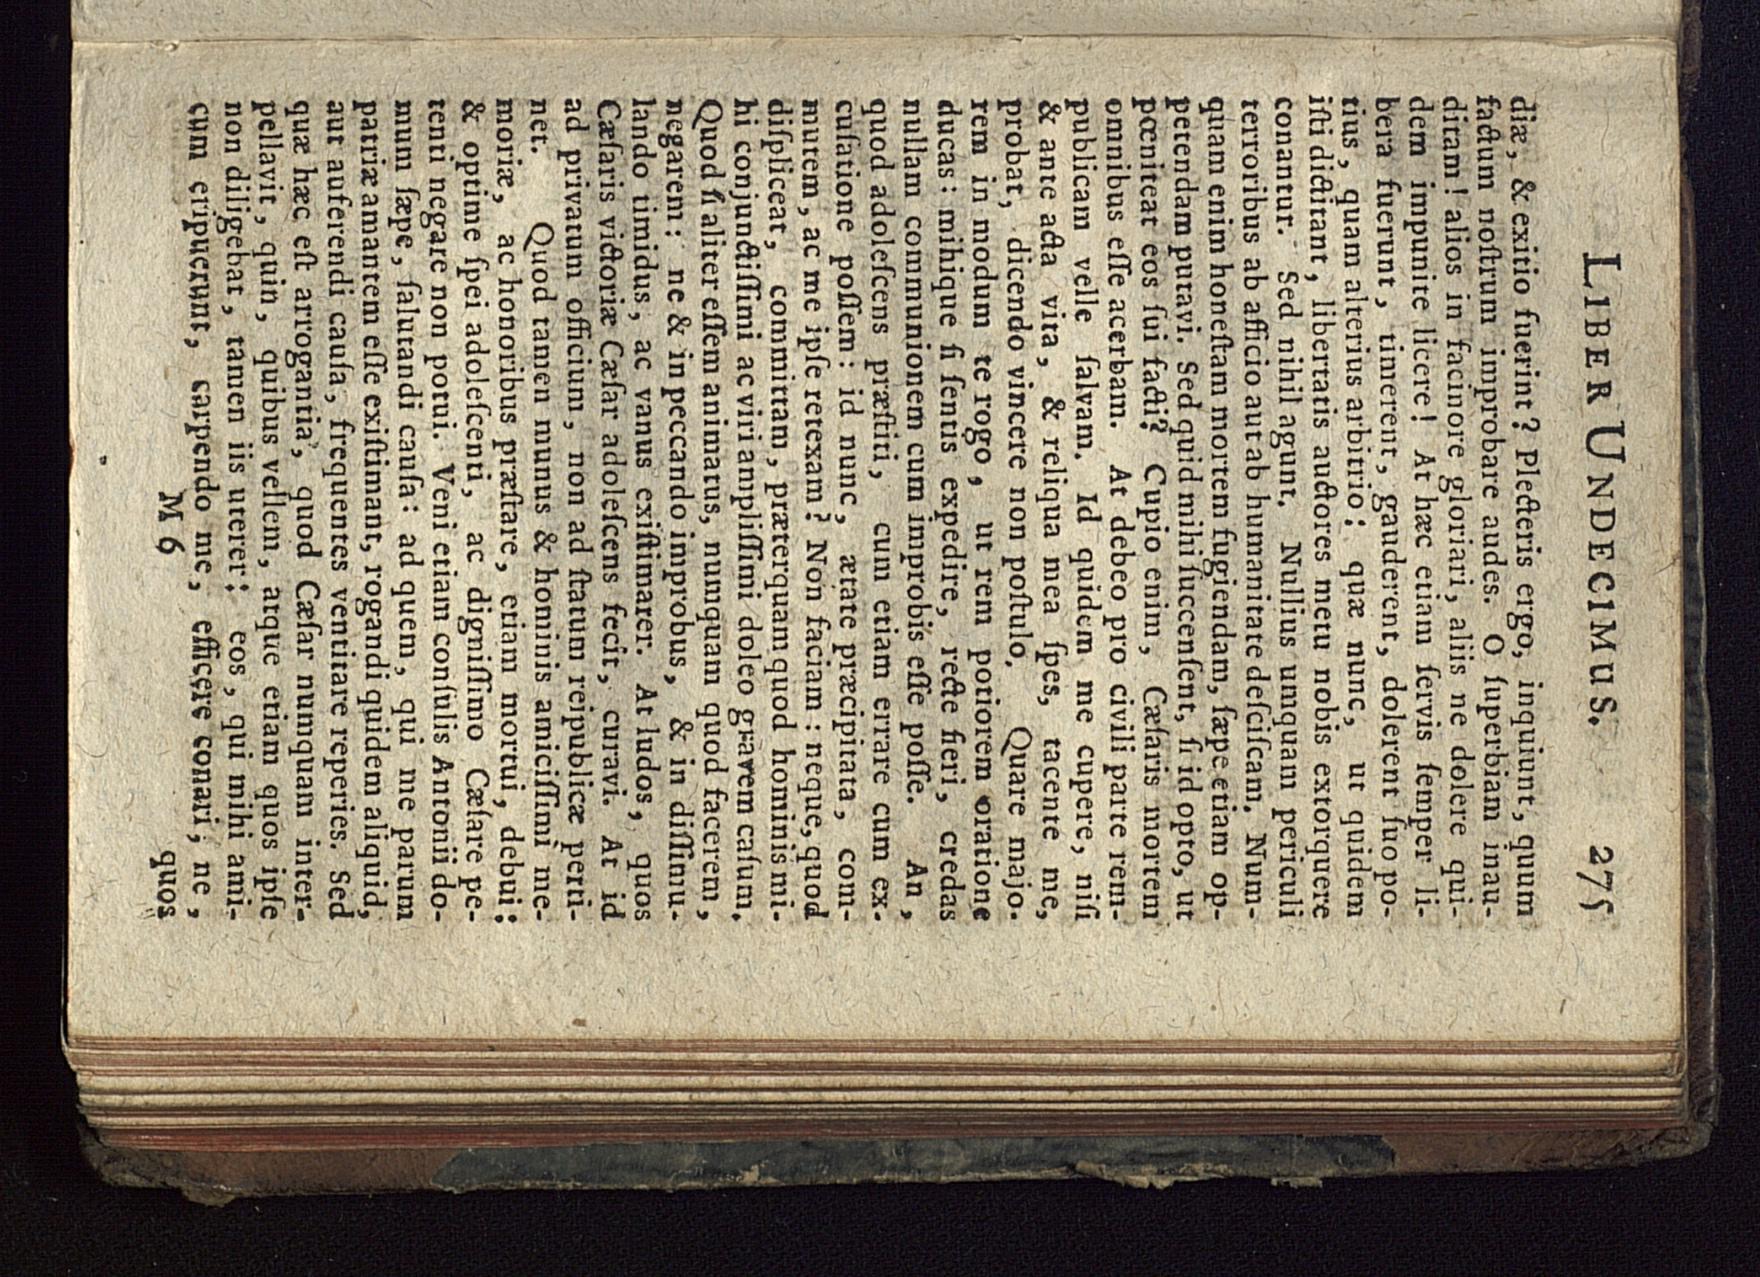 LIBER UNDECIMUS. 275
diæ, & exitio fuerint? Plecteris ergo, inquiunt, quum
factum noſtrum improbare audes. O ſuperbiam inau-
ditam! alios in facinore gloriari, aliis ne dolere qui-
dem impunite licere! At hæc etiam ſervis ſemper li-
bera fuerunt, timerent, gauderent, dolerent ſuo po-
tius, quam alterius arbitrio; quæ nunc, ut quidem
iſti dictitant, libertatis auctores metu nobis extorquere
conantur. Sed nihil agunt. Nullius umquam periculi
terroribus ab afficio aut ab humanitate deſciſcam. Num-
quam enim honeſtam mortem fugiendam, ſæpe etiam op-
petendam putavi. Sed quid mihi ſuccenſent, ſi id opto, ut
pœniteat eos ſui facti? Cupio enim, Cæſaris mortem
omnibus eſſe acerbam. At debeo pro civili parte rem-
publicam velle ſalvam. Id quidem me cupere, niſi
& ante acta vita, & reliqua mea ſpes, tacente me,
probat, dicendo vincere non poſtulo. Quare majo-
rem in modum te rogo, ut rem potiorem oratione
ducas: mihique ſi ſentis expedire, recte fieri, credas
nullam communionem cum improbis eſſe poſſe. An,
quod adoleſcens præſtiti, cum etiam errare cum ex-
cuſatione poſſem: id nunc, ætate præcipitata, com-
mutem, ac me ipſe retexam? Non faciam: neque, quod
diſpliceat, committam, præterquam quod hominis mi-
hi conjunctiſſimi ac viri ampliſſimi doleo gravem caſum.
Quod ſi aliter eſſem animatus, numquam quod facerem,
negarem: ne & in peccando improbus, & in diſſimu-
lando timidus, ac vanus exiſtimarer. At ludos, quos
Cæſaris victoriæ Cæſar adoleſcens fecit, curavi. At id
ad privatum officium, non ad ſtatum reipublicæ perti-
net. Quod tamen munus & hominis amiciſſimi me-
moriæ, ac honoribus præſtare, etiam mortui, debui;
& optime ſpei adoleſcenti, ac digniſſimo Cæſare pe-
tenti negare non potui. Veni etiam conſulis Antonii do-
mum ſæpe, ſalutandi cauſa: ad quem, qui me parum
patriæ amantem eſſe exiſtimant, rogandi quidem aliquid,
aut auferendi cauſa, frequentes ventitare reperies. Sed
quæ hæc eſt arrogantia, quod Cæſar numquam inter-
pellavit, quin, quibus vellem, atque etiam quos ipſe
non diligebat, tamen iis uterer; eos, qui mihi ami-
cum eripuerunt, carpendo me, efficere conari; ne,
M 6 quos